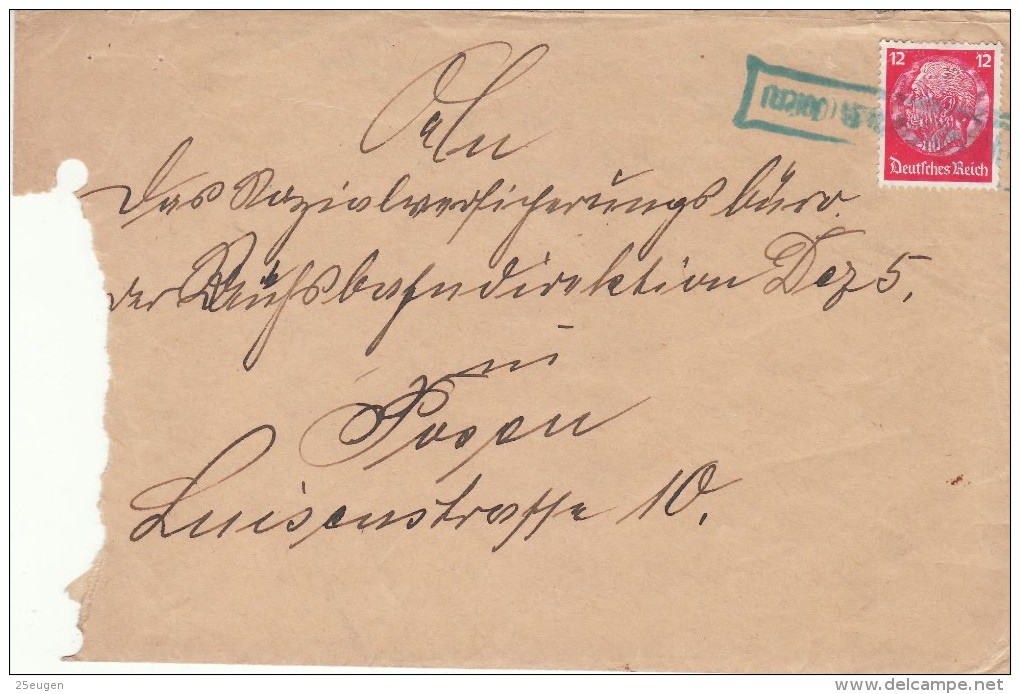 12 12
Deutsches Reich
An
das Sozialversicherungsbüro
der Reichsbahndirektion Dez 5,
in
Posen
Luisenstrasse 10.
25eugen
delcampe.net